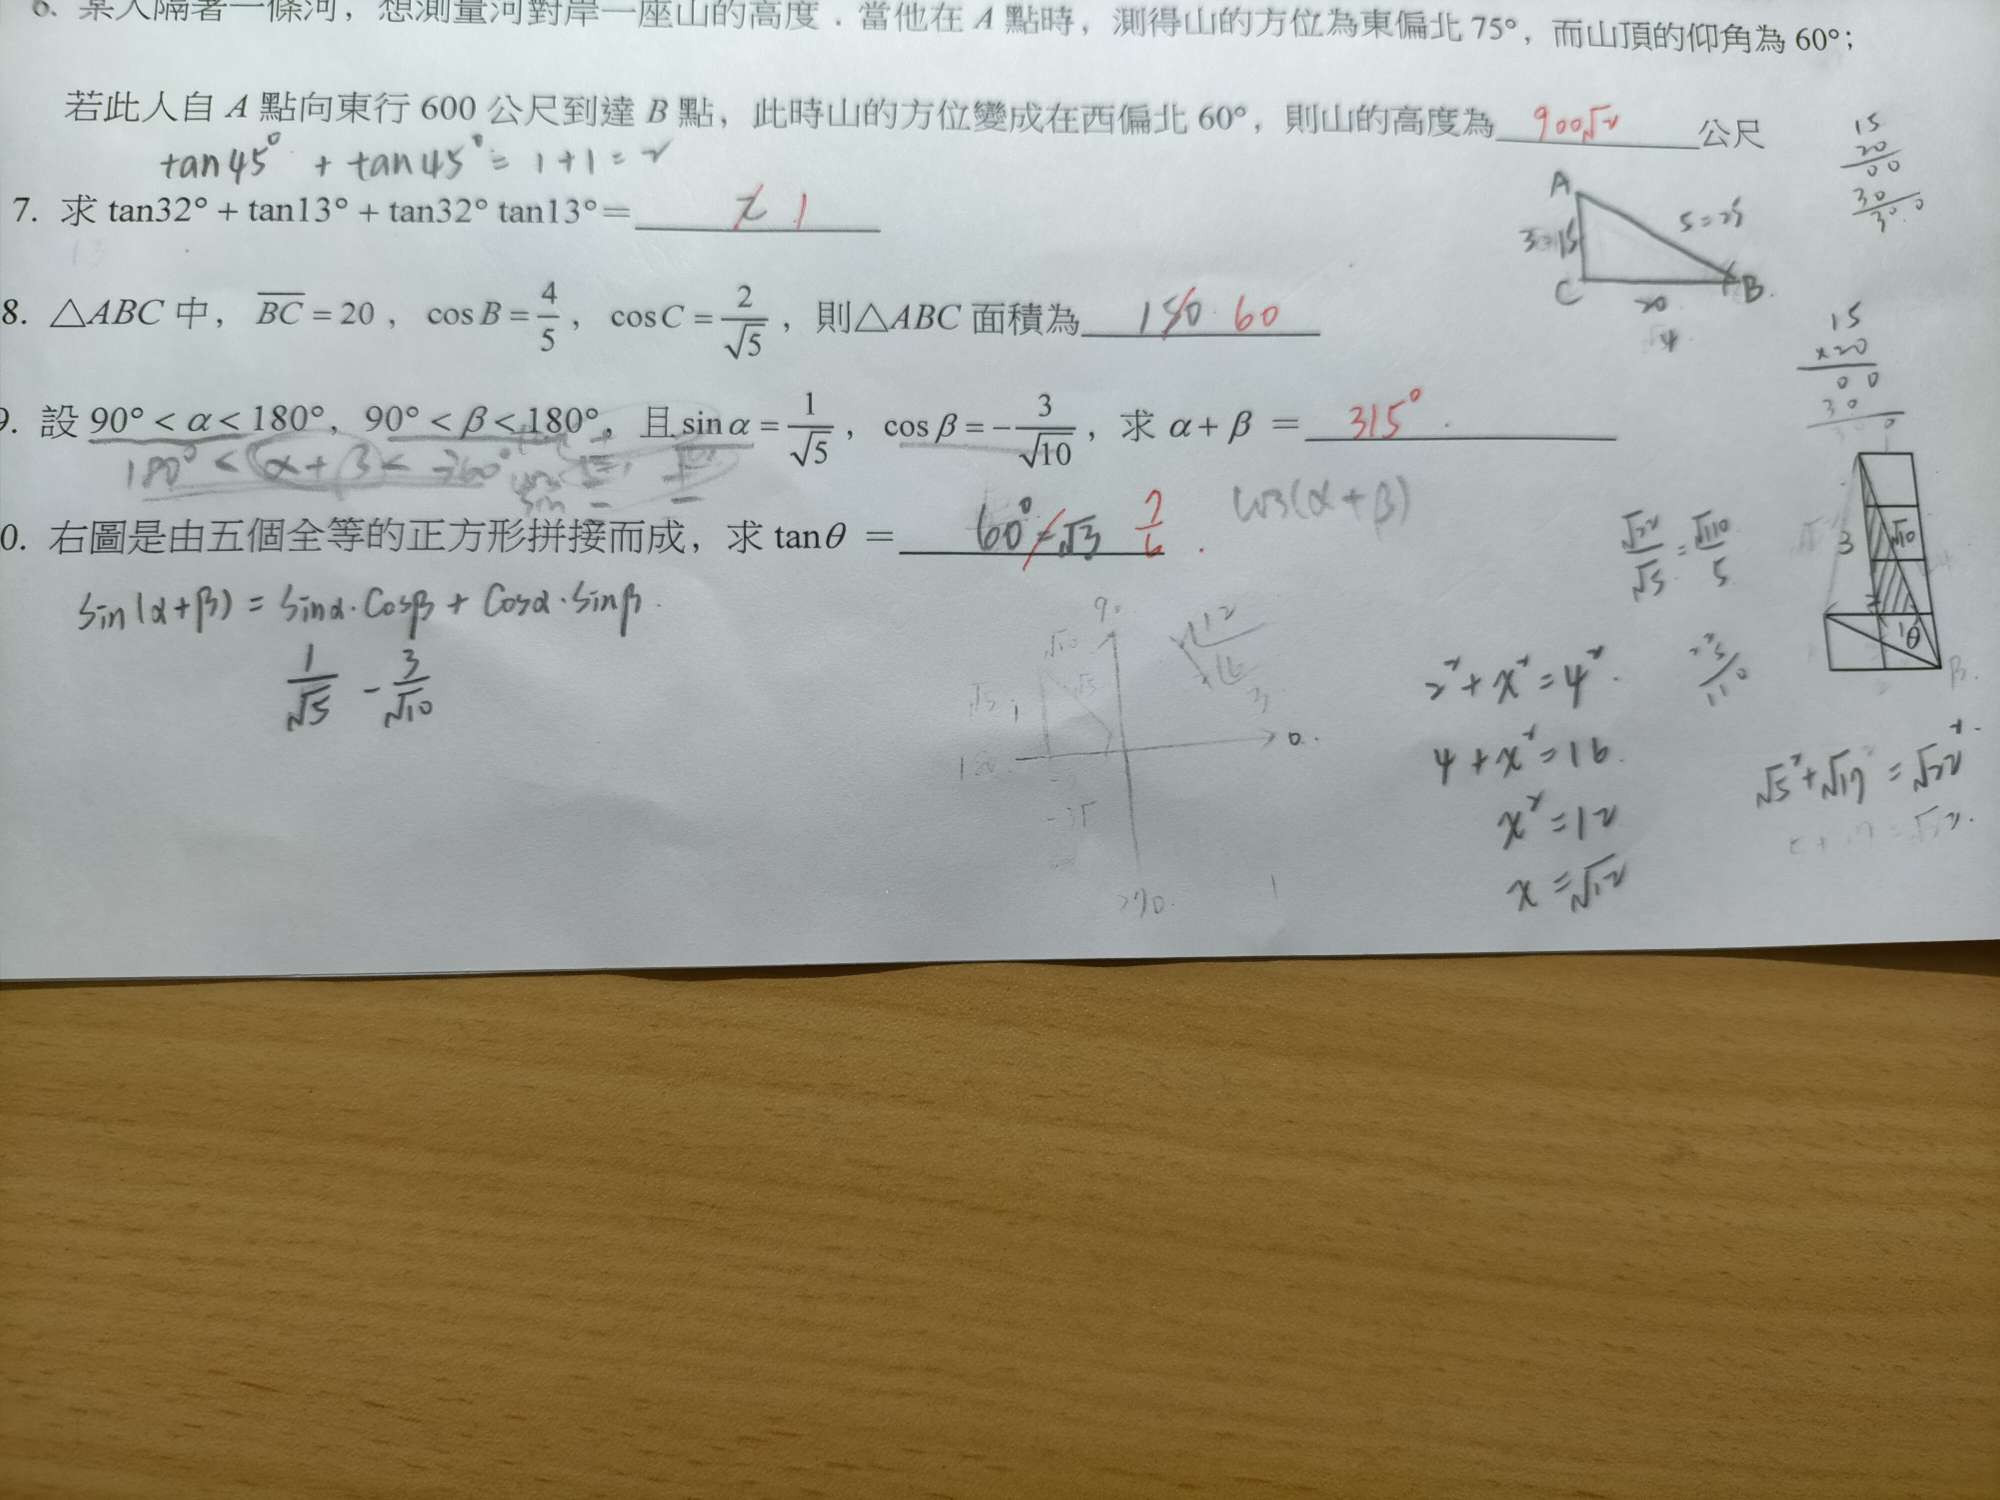 6. 某人隔著一條河，想測量河對岸一座山的高度．當他在 A 點時，測得山的方位為東偏北 75°，而山頂的仰角為 60°；
若此人自 A 點向東行 600 公尺到達 B 點，此時山的方位變成在西偏北 60°，則山的高度為 900√2 公尺
tan45° + tan45° = 1+1 = 2
7. 求 tan32° + tan13° + tan32° tan13° = 2 1
8. △ABC 中，BC = 20，cos B = 4/5，cos C = 2/√5，則△ABC 面積為 150 60
9. 設 90° < α < 180°，90° < β < 180°，且 sin α = 1/√5，cos β = −3/√10，求 α + β = 315°.
180° < α+β < 360°
0. 右圖是由五個全等的正方形拼接而成，求 tanθ = 60° = √3 7/6.
cos(α+β)
sin(α+β) = sinα·cosβ + cosα·sinβ.
1/√5 - 3/√10
A
3=15
5=25
C
20
B.
4
15
20
00
30
15
×20
00
30
√22/√5 = √110/5
3
√10
θ
B.
2²+x²=4².
4+x²=16.
x²=12
x=√12
√5²+√17²=√22²
90
√10
180
0.
270.